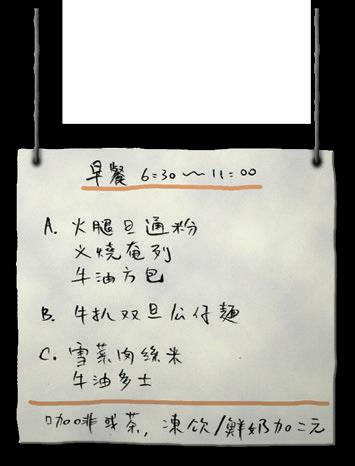 早餐 6:30~11:00
A. 火腿旦通粉
叉燒奄列
牛油方包
B. 牛扒双旦公仔麵
C. 雪菜肉絲米
牛油多士
咖啡或茶, 凍飲/鮮奶加二元